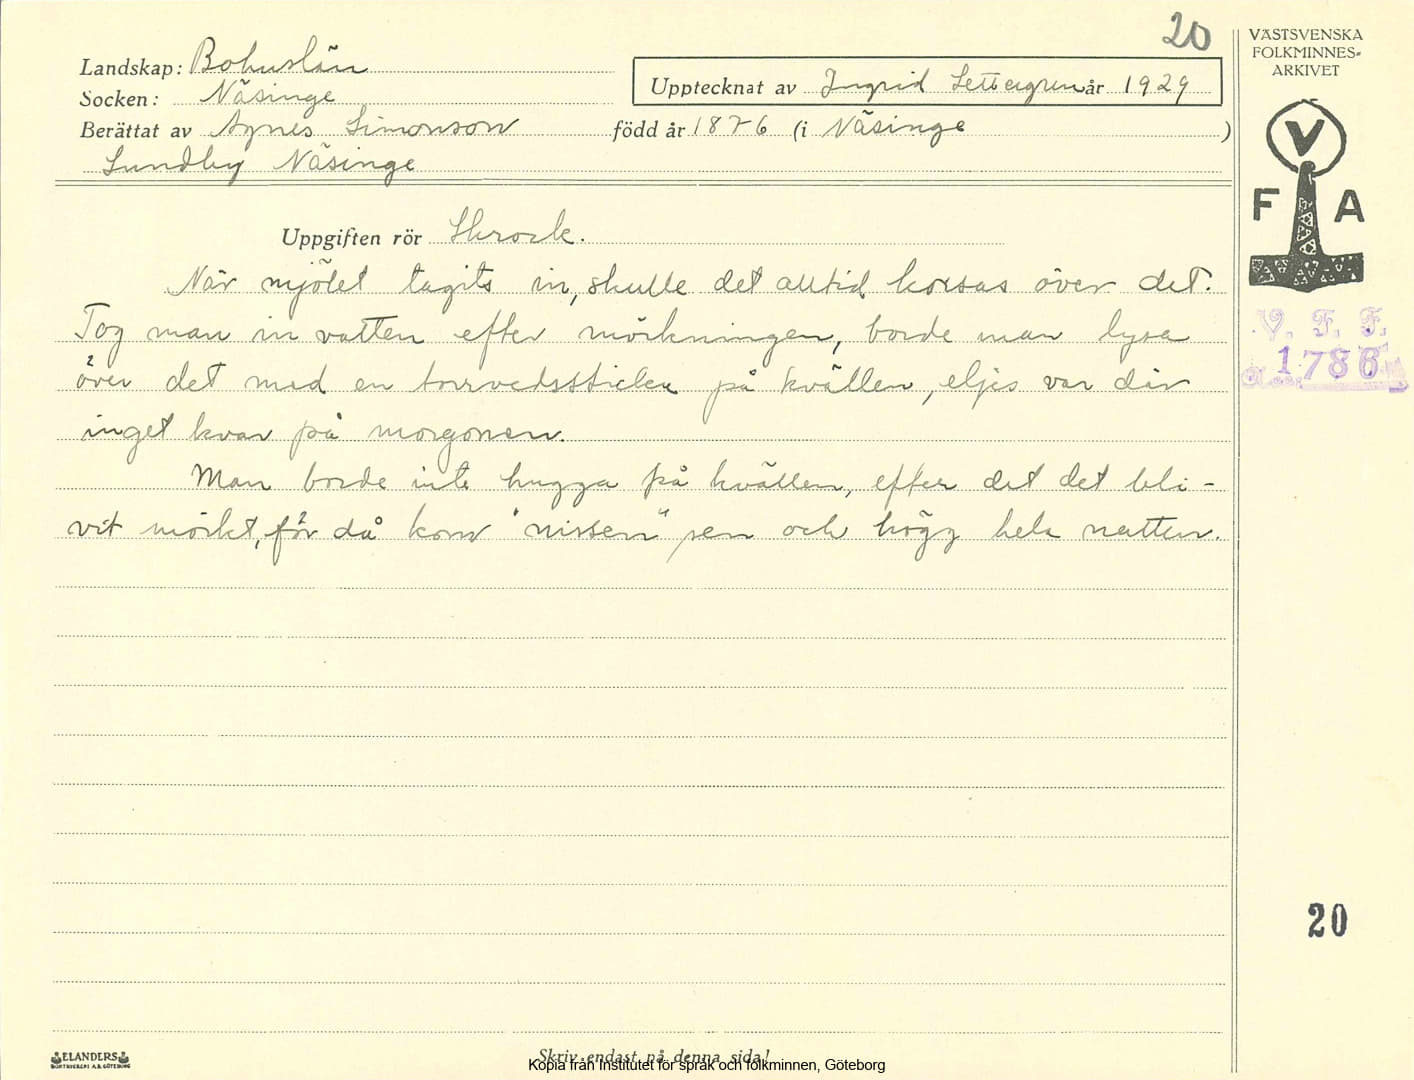 20
VÄSTSVENSKA
FOLKMINNES-
ARKIVET
Landskap: Bohuslän
Upptecknat av Ingrid Settergren år 1929
Socken: Näsinge
Berättat av Agnes Simonson född år 1876 (i Näsinge )
Lundby Näsinge
V
F A
Uppgiften rör Skrock.
När mjölet tagits in, skulle det alltid korsas över det.
Tog man in vatten efter mörkningen, borde man lysa
över det med en torrvedssticka på kvällen, eljes var där
inget kvar på morgonen.
Man borde inte hugga på kvällen, efter det det bli-
vit mörkt, för då kom "nissen" sen och högg hela natten.
V. F. F.
1786
20
ELANDERS
BOKTRYCKERI A.B. GÖTEBORG
Skriv endast på denna sida!
Kopia från Institutet för språk och folkminnen, Göteborg